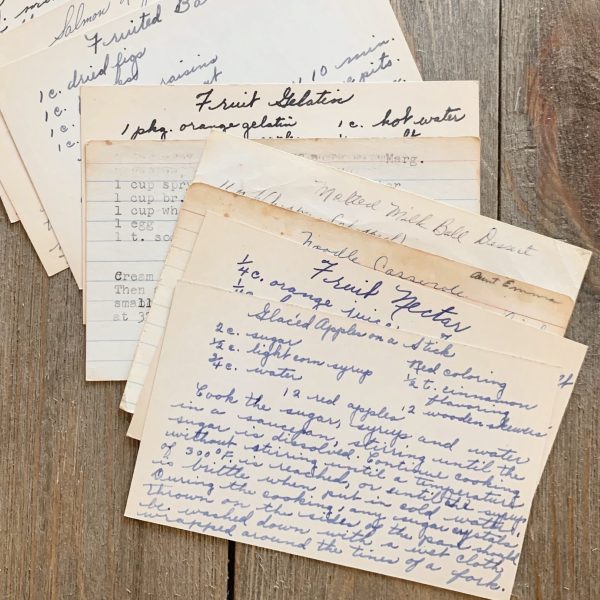 Salmon
Fruited Ba
1 c. dried figs
raisins
10 min.
pits.
Fruit Gelatin
1 pkg. orange gelatin 1 c. hot water
Marg.
1 cup
1 cup br.
1 cup wh
1 egg
1 t. so
Cream
Then
small
at 3
Malted Milk Ball Dessert
Noodle Casserole Aunt Emma
Fruit Nectar
1/4 c. orange juice
Glacéd Apples on a Stick
2 c. sugar Red coloring
1/2 c. light corn syrup 1/2 t. cinnamon
3/4 c. water flavoring
12 red apples 12 wooden skewers
Cook the sugar, syrup and water
in a saucepan, stirring until the
sugar is dissolved. Continue cooking
without stirring until a temperature
of 300°F. is reached, or until the syrup
is brittle when put in cold water.
During the cooking, any sugar crystals
thrown on the sides of the pan should
be washed down with a wet cloth
wrapped around the tines of a fork.